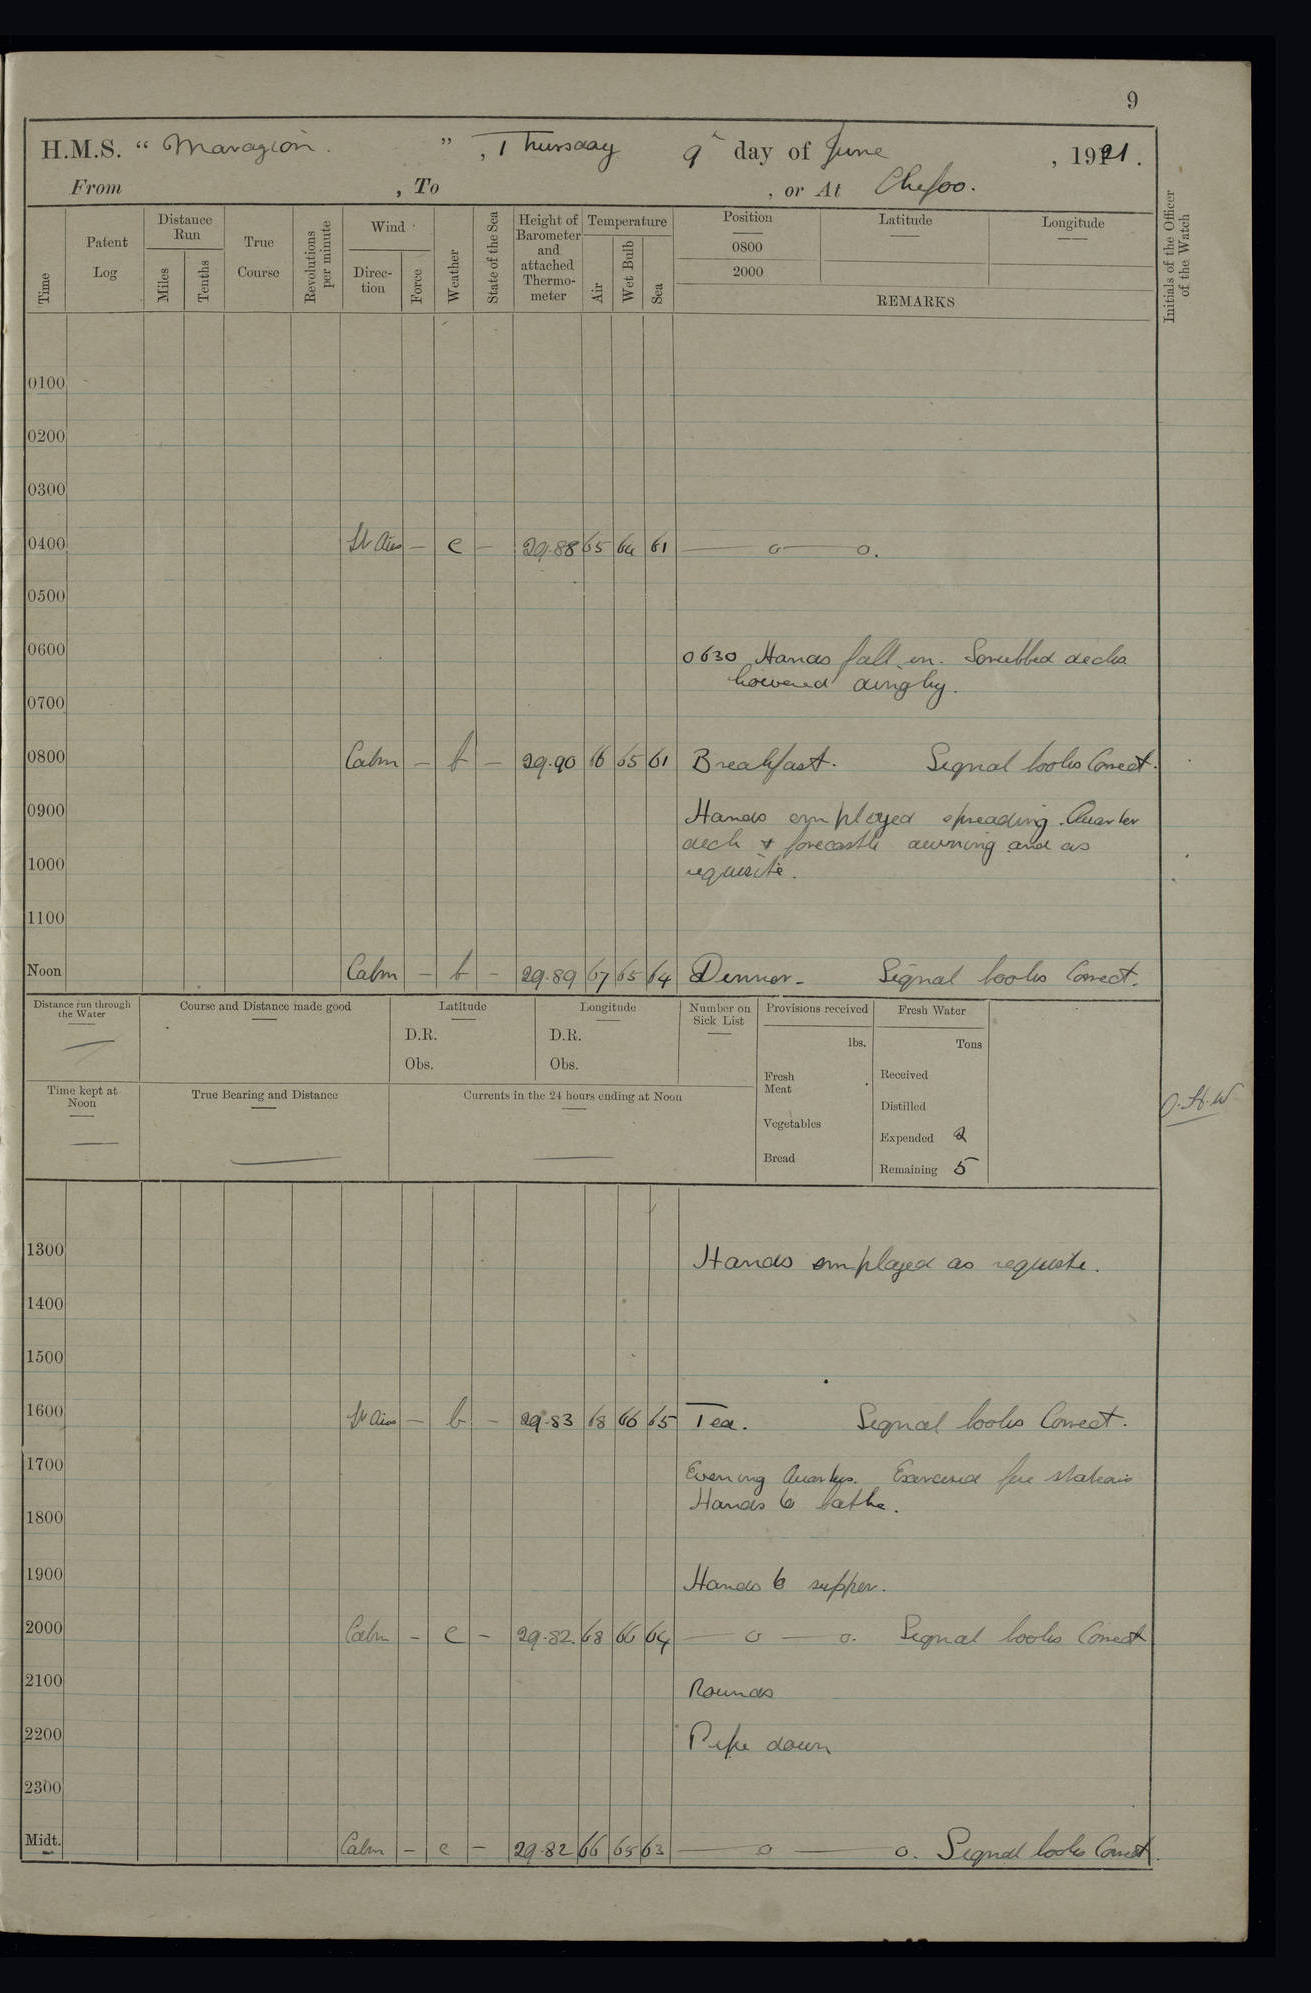 9
H.M.S. “ Marazion. ” , Thursday 9th day of June , 1921.
From , To , or At Chefoo.
Time
Patent Log
Distance Run
Miles
Tenths
True Course
Revolutions per minute
Wind
Direc-tion
Force
Weather
State of the Sea
Height of Barometer and attached Thermo-meter
Temperature
Air
Wet Bulb
Sea
Position
0800
2000
Latitude
Longitude
REMARKS
Initials of the Officer of the Watch
0100
0200
0300
0400 Lt Airs — c — 29.88 65 64 61 — o — o.
0500
0600 0630 Hands fall in. Scrubbed decks
lowered dinghy.
0700
0800 Calm — b — 29.90 66 65 61 Breakfast. Signal books Correct.
0900 Hands employed spreading Quarter
deck & forecastle awning and as
1000 requisite.
1100
Noon Calm — b — 29.89 67 65 64 Dinner. Signal books Correct.
Distance run through the Water
Course and Distance made good
Latitude
D.R.
Obs.
Longitude
D.R.
Obs.
Number on Sick List
Provisions received
lbs.
Fresh Meat
Vegetables
Bread
Fresh Water
Tons
Received
Distilled
Expended 2
Remaining 5
Time kept at Noon
True Bearing and Distance
Currents in the 24 hours ending at Noon
O.H.W
1300 Hands employed as requisite.
1400
1500
1600 Lt Airs — b — 29.83 68 66 65 Tea. Signal books Correct.
1700 Evening Quarters. Exercised fire stations
Hands to bathe.
1800
1900 Hands to supper.
2000 Calm — c — 29.82 68 66 64 — o — o. Signal books Correct
2100 Rounds
2200 Pipe down
2300
Midt. Calm — c — 29.82 66 65 63 — o — o. Signal books Correct.